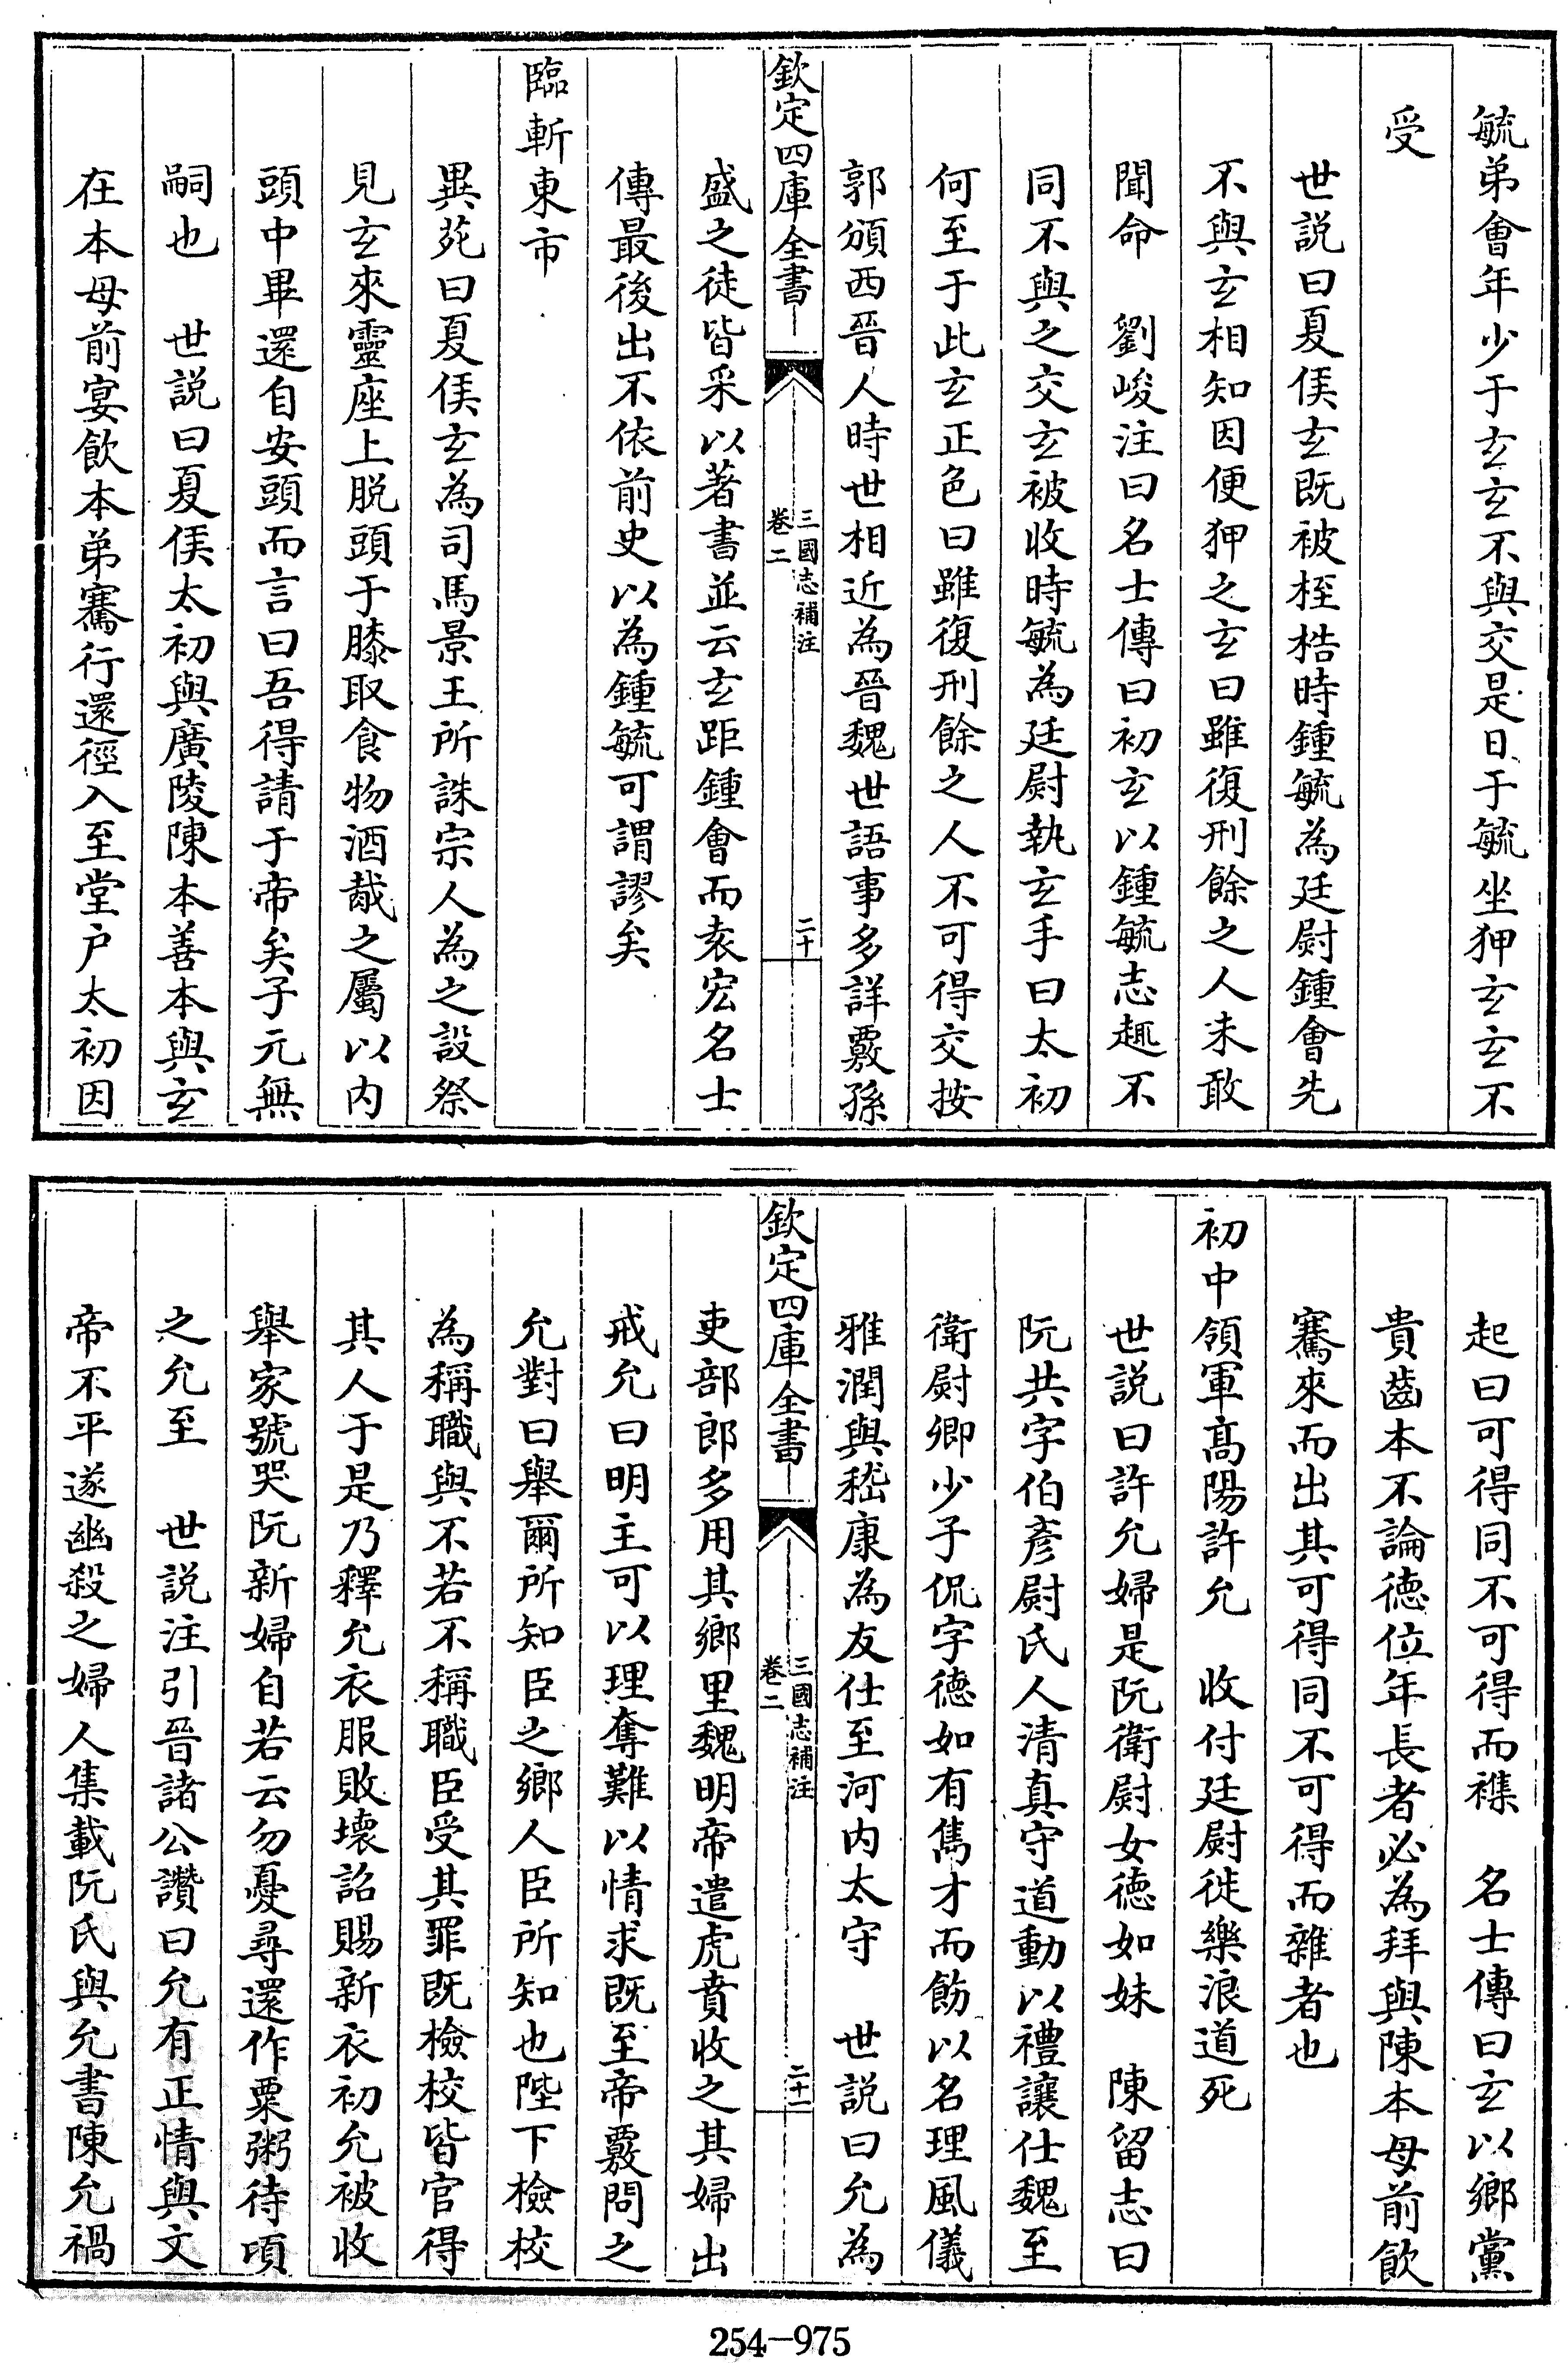 毓弟會年少于玄玄不與交是日于毓坐狎玄玄不
受
世説曰夏侯玄既被桎梏時鍾毓為廷尉鍾會先
不與玄相知因便狎之玄曰雖復刑餘之人未敢
聞命　劉峻注曰名士傳曰初玄以鍾毓志趣不
同不與之交玄被收時毓為廷尉執玄手曰太初
何至于此玄正色曰雖復刑餘之人不可得交按
郭頒西晉人時世相近為晉魏世語事多詳覈孫
欽定四庫全書
三國志補注
卷二
二十
盛之徒皆采以著書並云玄距鍾會而袁宏名士
傳最後出不依前史以為鍾毓可謂謬矣
臨斬東市
異苑曰夏侯玄為司馬景王所誅宗人為之設祭
見玄來靈座上脱頭于膝取食物酒胾之屬以内
頭中畢還自安頭而言曰吾得請于帝矣子元無
嗣也　世説曰夏侯太初與廣陵陳本善本與玄
在本母前宴飲本弟騫行還徑入至堂户太初因
起曰可得同不可得而襍　名士傳曰玄以鄉黨
貴齒本不論德位年長者必為拜與陳本母前飲
騫來而出其可得同不可得而雜者也
初中領軍髙陽許允　收付廷尉徙樂浪道死
世説曰許允婦是阮衛尉女德如妹　陳留志曰
阮共字伯彥尉氏人清真守道動以禮讓仕魏至
衛尉卿少子侃字德如有雋才而飭以名理風儀
雅潤與嵇康為友仕至河内太守　世説曰允為
欽定四庫全書
三國志補注
卷二
二十一
吏部郎多用其鄉里魏明帝遣虎賁收之其婦出
戒允曰明主可以理奪難以情求既至帝覈問之
允對曰舉爾所知臣之鄉人臣所知也陛下檢校
為稱職與不若不稱職臣受其罪既檢校皆官得
其人于是乃釋允衣服敗壞詔賜新衣初允被收
舉家號哭阮新婦自若云勿憂尋還作粟粥待頃
之允至　世説注引晉諸公讚曰允有正情與文
帝不平遂幽殺之婦人集載阮氏與允書陳允禍
254—975